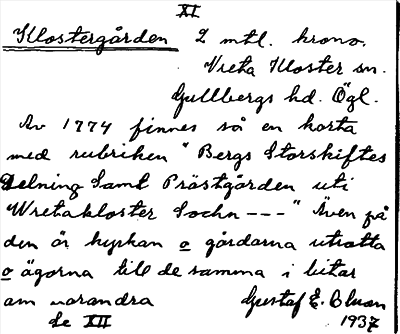 XI
Klostergården 2 mtl. krono.
Vreta Kloster sn.
Gullbergs hd. Ögl.
Av 1774 finnes så en karta
med rubriken "Bergs Storskiftes
Delning Samt Prästgården uti
Wretakloster Sochn - - - " Även på
den är kyrkan o gårdarna utsatta
o ägorna till de samma i bitar
om varandra Gustaf E. Bluan
Se XII 1937